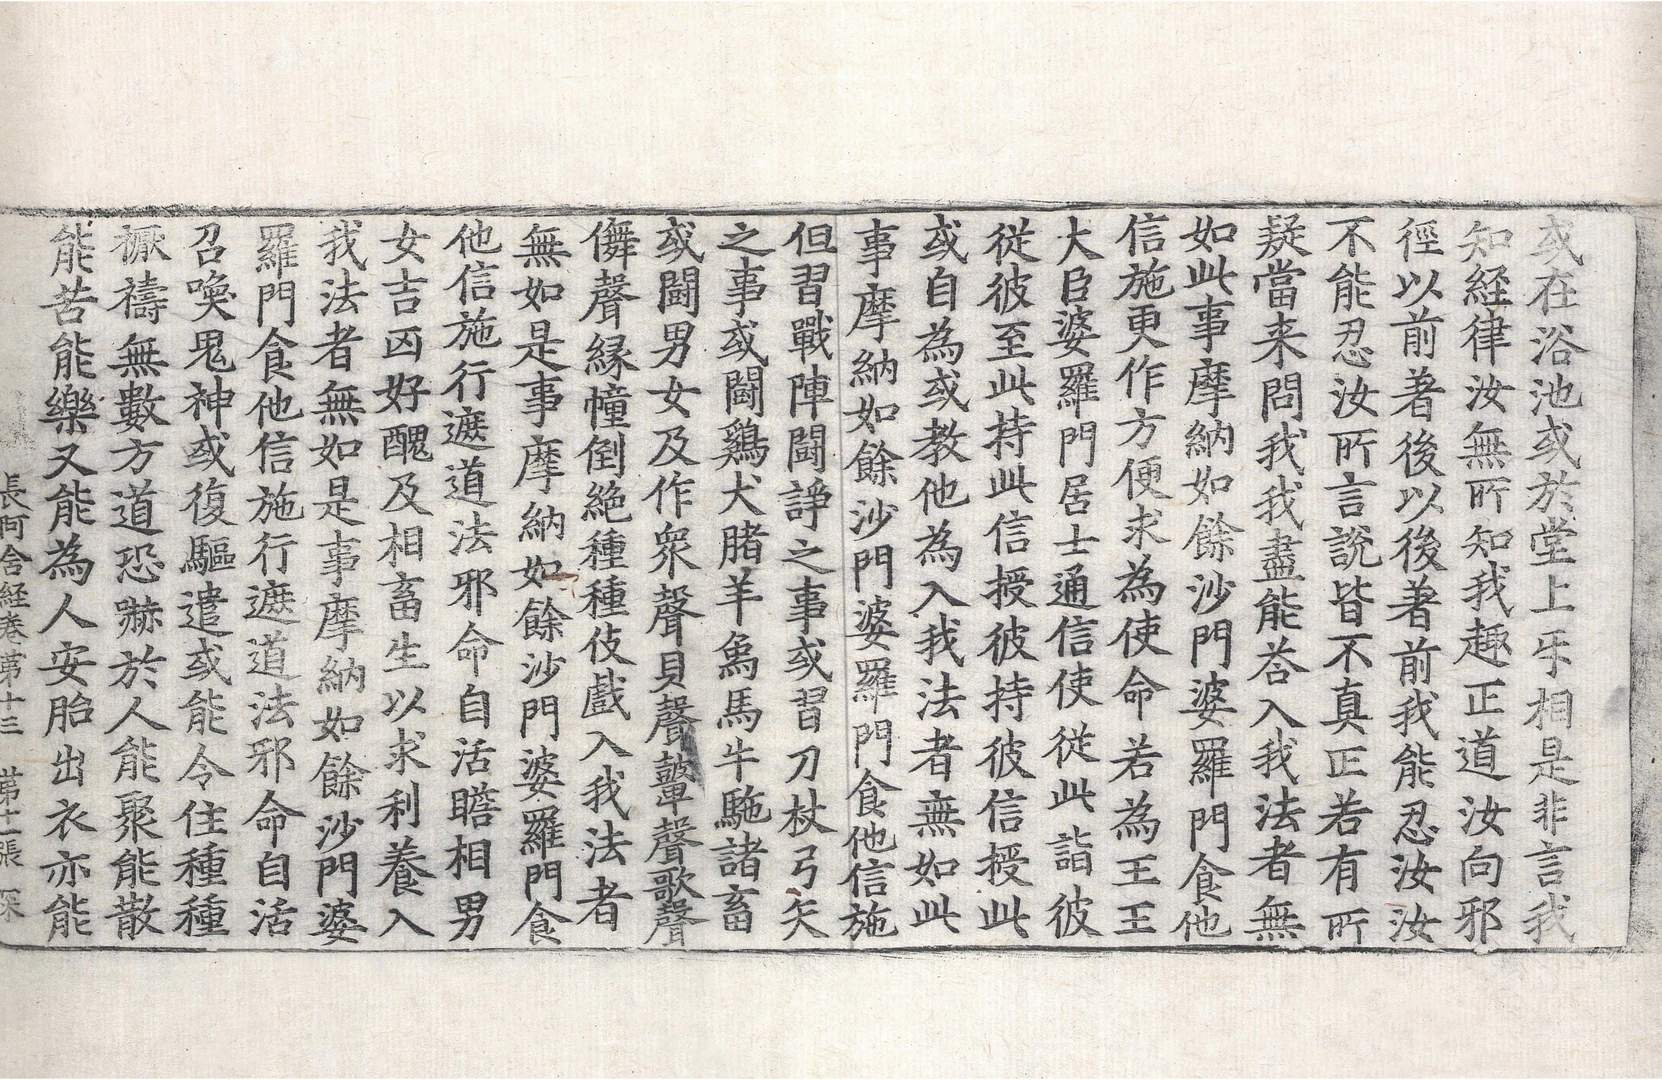 或在浴池或於堂上㸦相是非言我
知經律汝無所知我趣正道汝向邪
徑以前著後以後著前我能忍汝汝
不能忍汝所言說皆不真正若有所
疑當来問我我盡能荅入我法者無
如此事摩納如餘沙門婆羅門食他
信施更作方便求為使命若為王王
大臣婆羅門居士通信使從此詣彼
從彼至此持此信授彼持彼信授此
或自為或教他為入我法者無如此
事摩納如餘沙門婆羅門食他信施
但習戰陣鬪諍之事或習刀杖弓矢
之事或鬪鷄犬䐗羊𤉡馬牛駞諸畜
或鬪男女及作衆聲貝聲鼙聲歌聲
儛聲緣幢倒絶種種伎戲入我法者
無如是事摩納如餘沙門婆羅門食
他信施行遮道法邪命自活瞻相男
女吉凶好醜及相畜生以求利養入
我法者無如是事摩納如餘沙門婆
羅門食他信施行遮道法邪命自活
召喚鬼神或復驅遣或能令住種種
𥛚禱無數方道恐嚇於人能聚能散
能苦能樂又能為人安胎出衣亦能
長阿含経卷第十三 第十一張 深